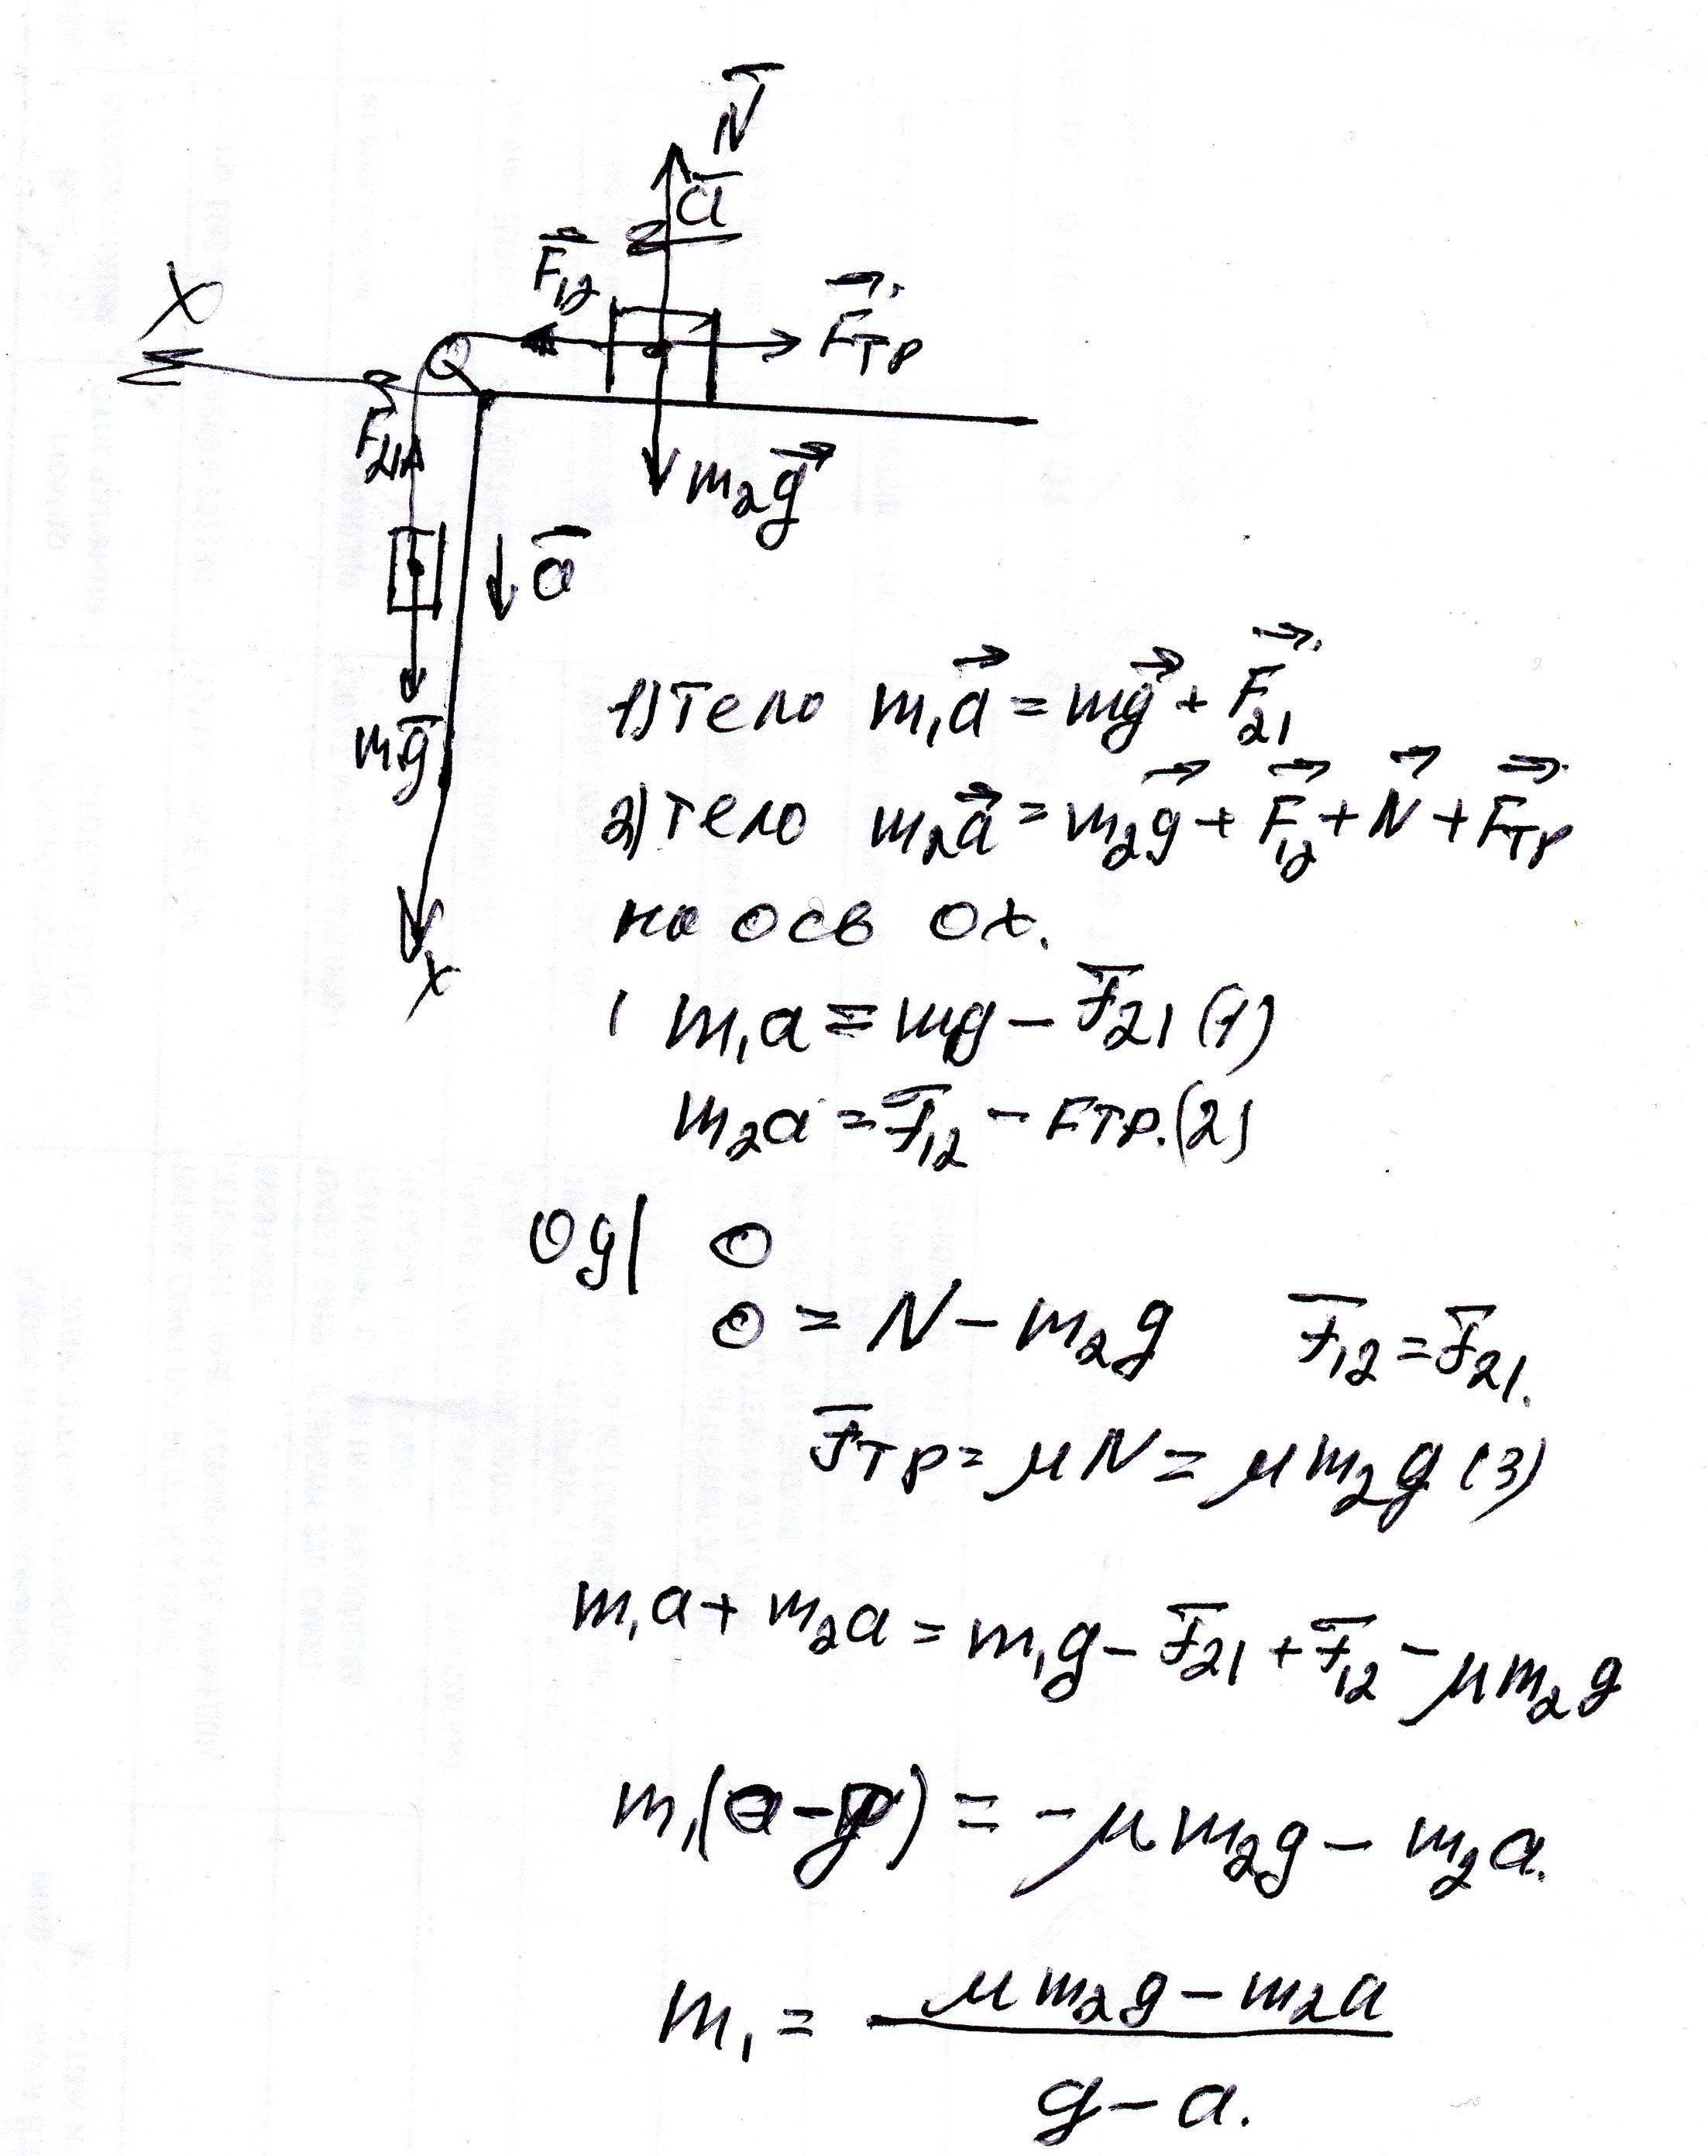 N
a
F₁₂
X
Fтр
F₂₁
m₂g
a
mg
X
1) тело m₁a = mg + F₂₁
2) тело m₂a = m₂g + F₁₂ + N + Fтр
на осв ох.
1 m₁a = mg – F₂₁ (1)
m₂a = F₁₂ – Fтр. (2)
Oy| 0
0 = N – m₂g F₁₂ = F₂₁.
Fтр = μN = μm₂g (3)
m₁a + m₂a = m₁g – F₂₁ + F₁₂ – μm₂g
m₁(a – g) = –μm₂g – m₂a.
m₁ = μm₂g – m₂a
g – a.